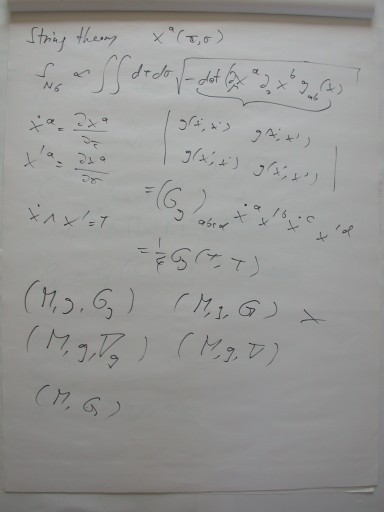 String theory x^a(τ,σ)
S_NG ∝ ∬ dτdσ √(-det(∂x^a ∂x^b g_ab(x)))
ẋ^a = ∂x^a/∂τ
x'^a = ∂x^a/∂σ
| g(ẋ,ẋ) g(ẋ,x') |
| g(x',ẋ) g(x',x') |
= (G_g)_abcd ẋ^a x'^b ẋ^c x'^d
ẋ ∧ x' = T
= 1/4 G_g(T,T)
(M, g, G_g) (M, g, G)
(M, g, ∇_g) (M, g, ∇)
(M, G)